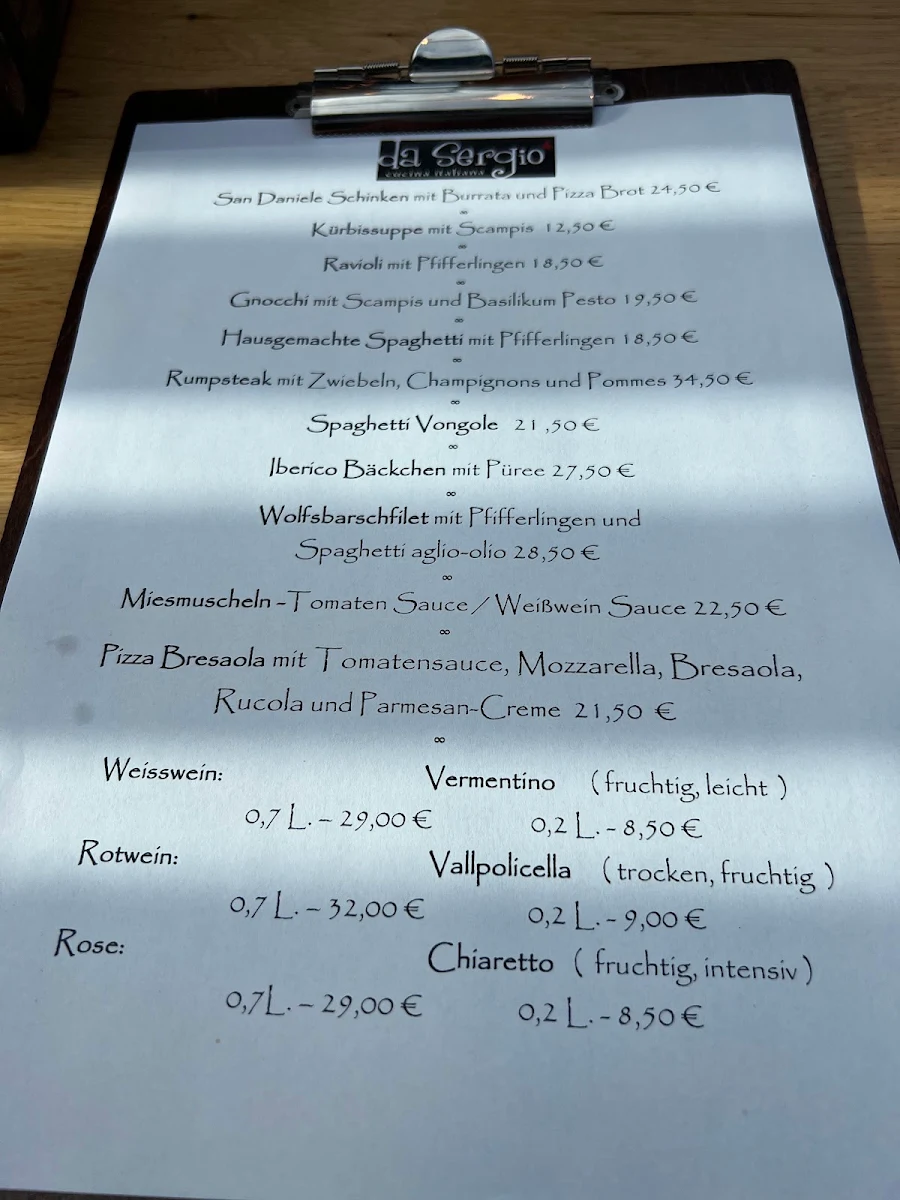 da Sergio
cucina italiana
San Daniele Schinken mit Burrata und Pizza Brot 24,50 €
∞
Kürbissuppe mit Scampis 12,50 €
∞
Ravioli mit Pfifferlingen 18,50 €
∞
Gnocchi mit Scampis und Basilikum Pesto 19,50 €
∞
Hausgemachte Spaghetti mit Pfifferlingen 18,50 €
∞
Rumpsteak mit Zwiebeln, Champignons und Pommes 34,50 €
∞
Spaghetti Vongole 21,50 €
∞
Iberico Bäckchen mit Püree 27,50 €
∞
Wolfsbarschfilet mit Pfifferlingen und
Spaghetti aglio-olio 28,50 €
∞
Miesmuscheln -Tomaten Sauce / Weißwein Sauce 22,50 €
∞
Pizza Bresaola mit Tomatensauce, Mozzarella, Bresaola,
Rucola und Parmesan-Creme 21,50 €
∞
Weisswein: Vermentino (fruchtig, leicht )
0,7 L. – 29,00 € 0,2 L. - 8,50 €
Rotwein: Vallpolicella (trocken, fruchtig )
0,7 L. – 32,00 € 0,2 L. - 9,00 €
Rose: Chiaretto ( fruchtig, intensiv )
0,7 L. – 29,00 € 0,2 L. - 8,50 €